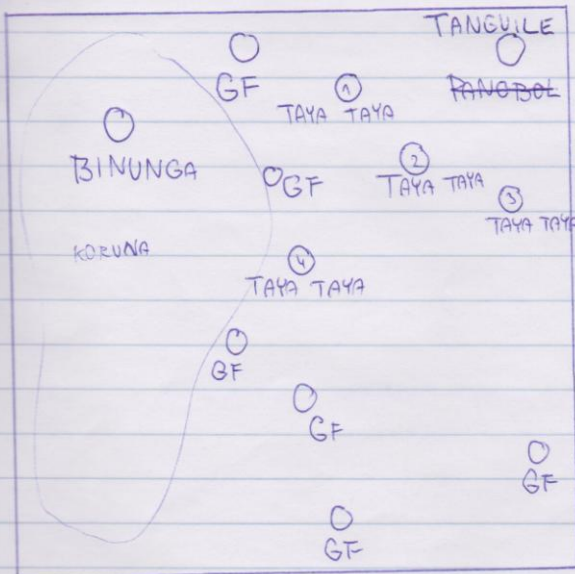 TANGUILE
GF
PANGBOL
1
TAYA TAYA
BINUNGA
GF
2
TAYA TAYA
3
TAYA TAYA
KORUNA
4
TAYA TAYA
GF
GF
GF
GF